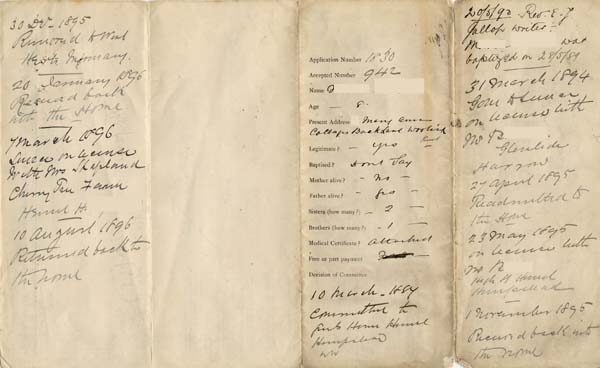 30 Dec. 1895
Removed to West
Herts Infirmary.
20 January 1896
Received back
into the Home
7 March 1896
on license
With Mrs
Cherry Tree Farm
Hemel H.
10 August 1896
Returned back to
the Home
Application Number 1830
Accepted Number 942
Name
Age — 8.
Present Address Mary Anns
Cottage Buckland
Legitimate? — yes
Baptised? — Dont Say
Mother alive? — no —
Father alive? — yes —
Sisters (how many?) — 2 —
Brothers (how many?) — 1 —
Medical Certificate? attached
Free or part payment
Decision of Committee
10 March 1889
Committed to
Home Hemel
Hempstead
20/5/93 Rev. E. J
Gallop writes:
M was
baptized on 28/5/89
31 March 1894
Gone to
on license with
Mr B
Glenlide
Harrow
27 April 1895
Readmitted to
the Home
23 May 1895
on license with
Mr R
High St Hemel
Hempstead
1 November 1895
Received back into
the Home